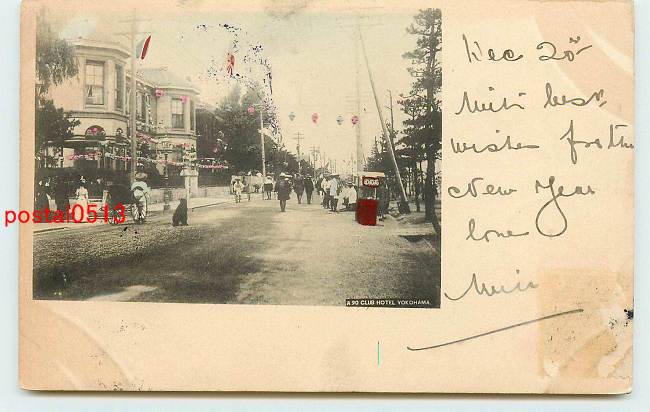 Dec 25
With best
wishes for the
New Year
love
postal0513
A 90 CLUB HOTEL YOKOHAMA.